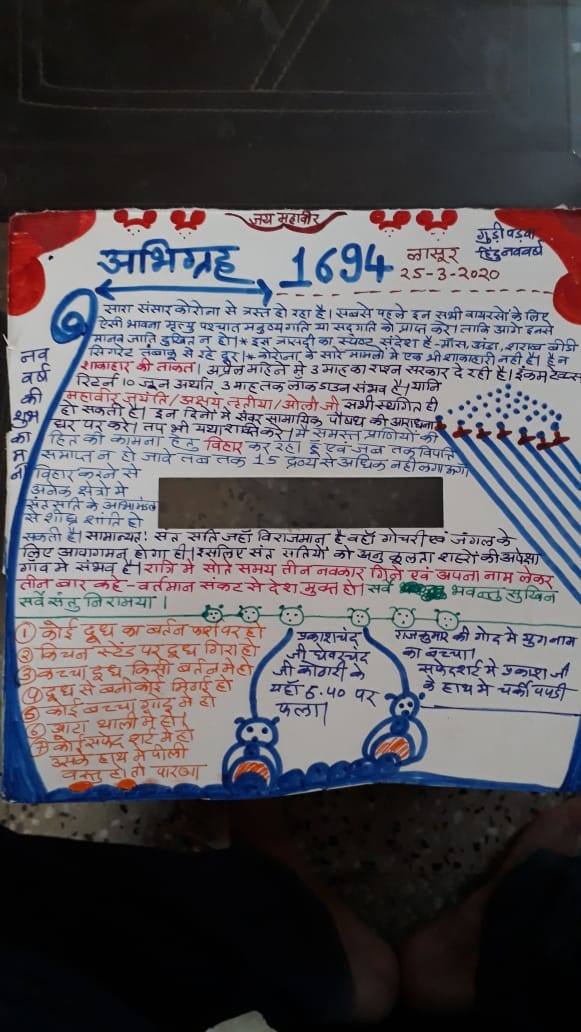 जय महावीर
गुड़ी पड़वा
हिंदु नववर्ष
अभिग्रह 1694 लासूर
25-3-2020
सारा संसार कोरोना से त्रस्त हो रहा है। सबसे पहले इन सभी वायरसो के लिए
ऐसी भावना मृत्यु पश्चात मनुष्यगति या सद्गति को प्राप्त करे। ताकि आगे इनसे
मानव जाति दुखित न हो।* इस त्रासदी का स्पष्ट संदेश है - माँस, अंडा, शराब बीडी
सिगरेट तंबाखू से रहे दूर।* कोरोना के सारे मामलो मे एक भी शाकाहारी नही है। है न
शाकाहार की ताकत। अप्रेल महिने मे 3 माह का राशन सरकार दे रही है। इंकम टेक्स
रिटर्न 10 जून अर्थात् 3 माह तक लाकडाउन संभव है। यानि
महावीर जयंति/अक्षय तृतीया/ओली जी सभी स्थगित ही
हो सकती है। इन दिनो मे संवर सामायिक पौषध की आराधना
घर पर करे। तप भी यथाशक्ति करे। मै समस्त प्राणियों की
हित की कामना हेतु विहार कर रहा हूं एवं जब तक विपत्ति
समाप्त न हो जावे तब तक 15 द्रव्य से अधिक नही लगाऊंगा
नव वर्ष की शुभ कामना
विहार करने से
अनेक क्षेत्रो मे
संत सति के आभामंडल
से शीघ्र शांति हो
सकती है। सामान्यतः संत सति जहाँ विराजमान है वहाँ गोचरी एवं जंगल के
लिए आवागमन होगा ही। इसलिए संत सतियों को अनुकूलता शहरो की अपेक्षा
गांव मे संभव है। रात्रि मे सोते समय तीन नवकार गिने एवं अपना नाम लेकर
तीन बार कहे - वर्तमान संकट से देश मुक्त हो। सर्वे भवन्तु सुखिन
सर्वे संतु निरामया।
① कोई दूध का बर्तन फर्श पर हो
② किचन स्टेंड पर दूध गिरा हो
③ कच्चा दूध किसी बर्तन मे हो
④ दूध से बनी कोई मिठाई हो
⑤ कोई बच्चा गोद मे हो
⑥ आटा थाली मे हो।
⑦ कोई सफेद शर्ट मे हो
उसके हाथ मे पीली
वस्तु हो तो पारणा
प्रकाशचंद
जी घेवरचंद
जी कोठारी के
यहाँ 6.40 पर
फला।
राजकुमार की गोद मे युग नाम
का बच्चा।
सफेद शर्ट मे प्रकाश जी
के हाथ मे चक्की पपडी